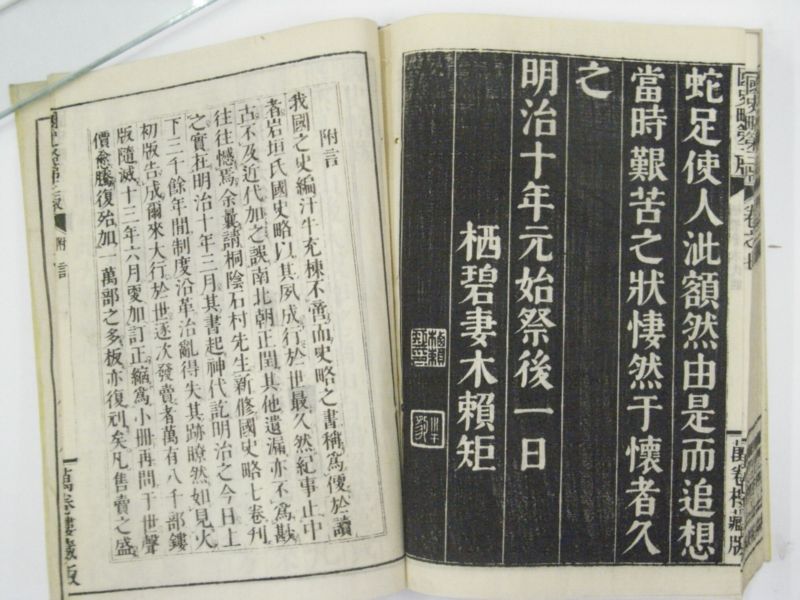 蛇足使人泚額然由是而追想
當時艱苦之狀悽然于懷者久
之
明治十年元始祭後一日
栖碧妻木賴矩
附言
我國之史編汗牛充棟不啻而史略之書稱爲便於讀
者岩垣氏國史略以其夙成行於世最久然紀事止中
古不及近代加之誤南北朝正閏其他遺漏亦不爲尠
往往憾焉余曩請桐陰石村先生新修國史略七卷刋
之實在明治十年三月其書起神代訖明治之今日上
下三千餘年間制度沿革治亂得失其跡瞭然如見火
初版告成爾來大行於世逐次發賣者萬有八千部鏤
版隨滅十三年六月更加訂正縮爲小册再問于世聲
價愈騰復殆加一萬部之多板亦復刓矣凡售賣之盛
附言
萬卷樓藏版